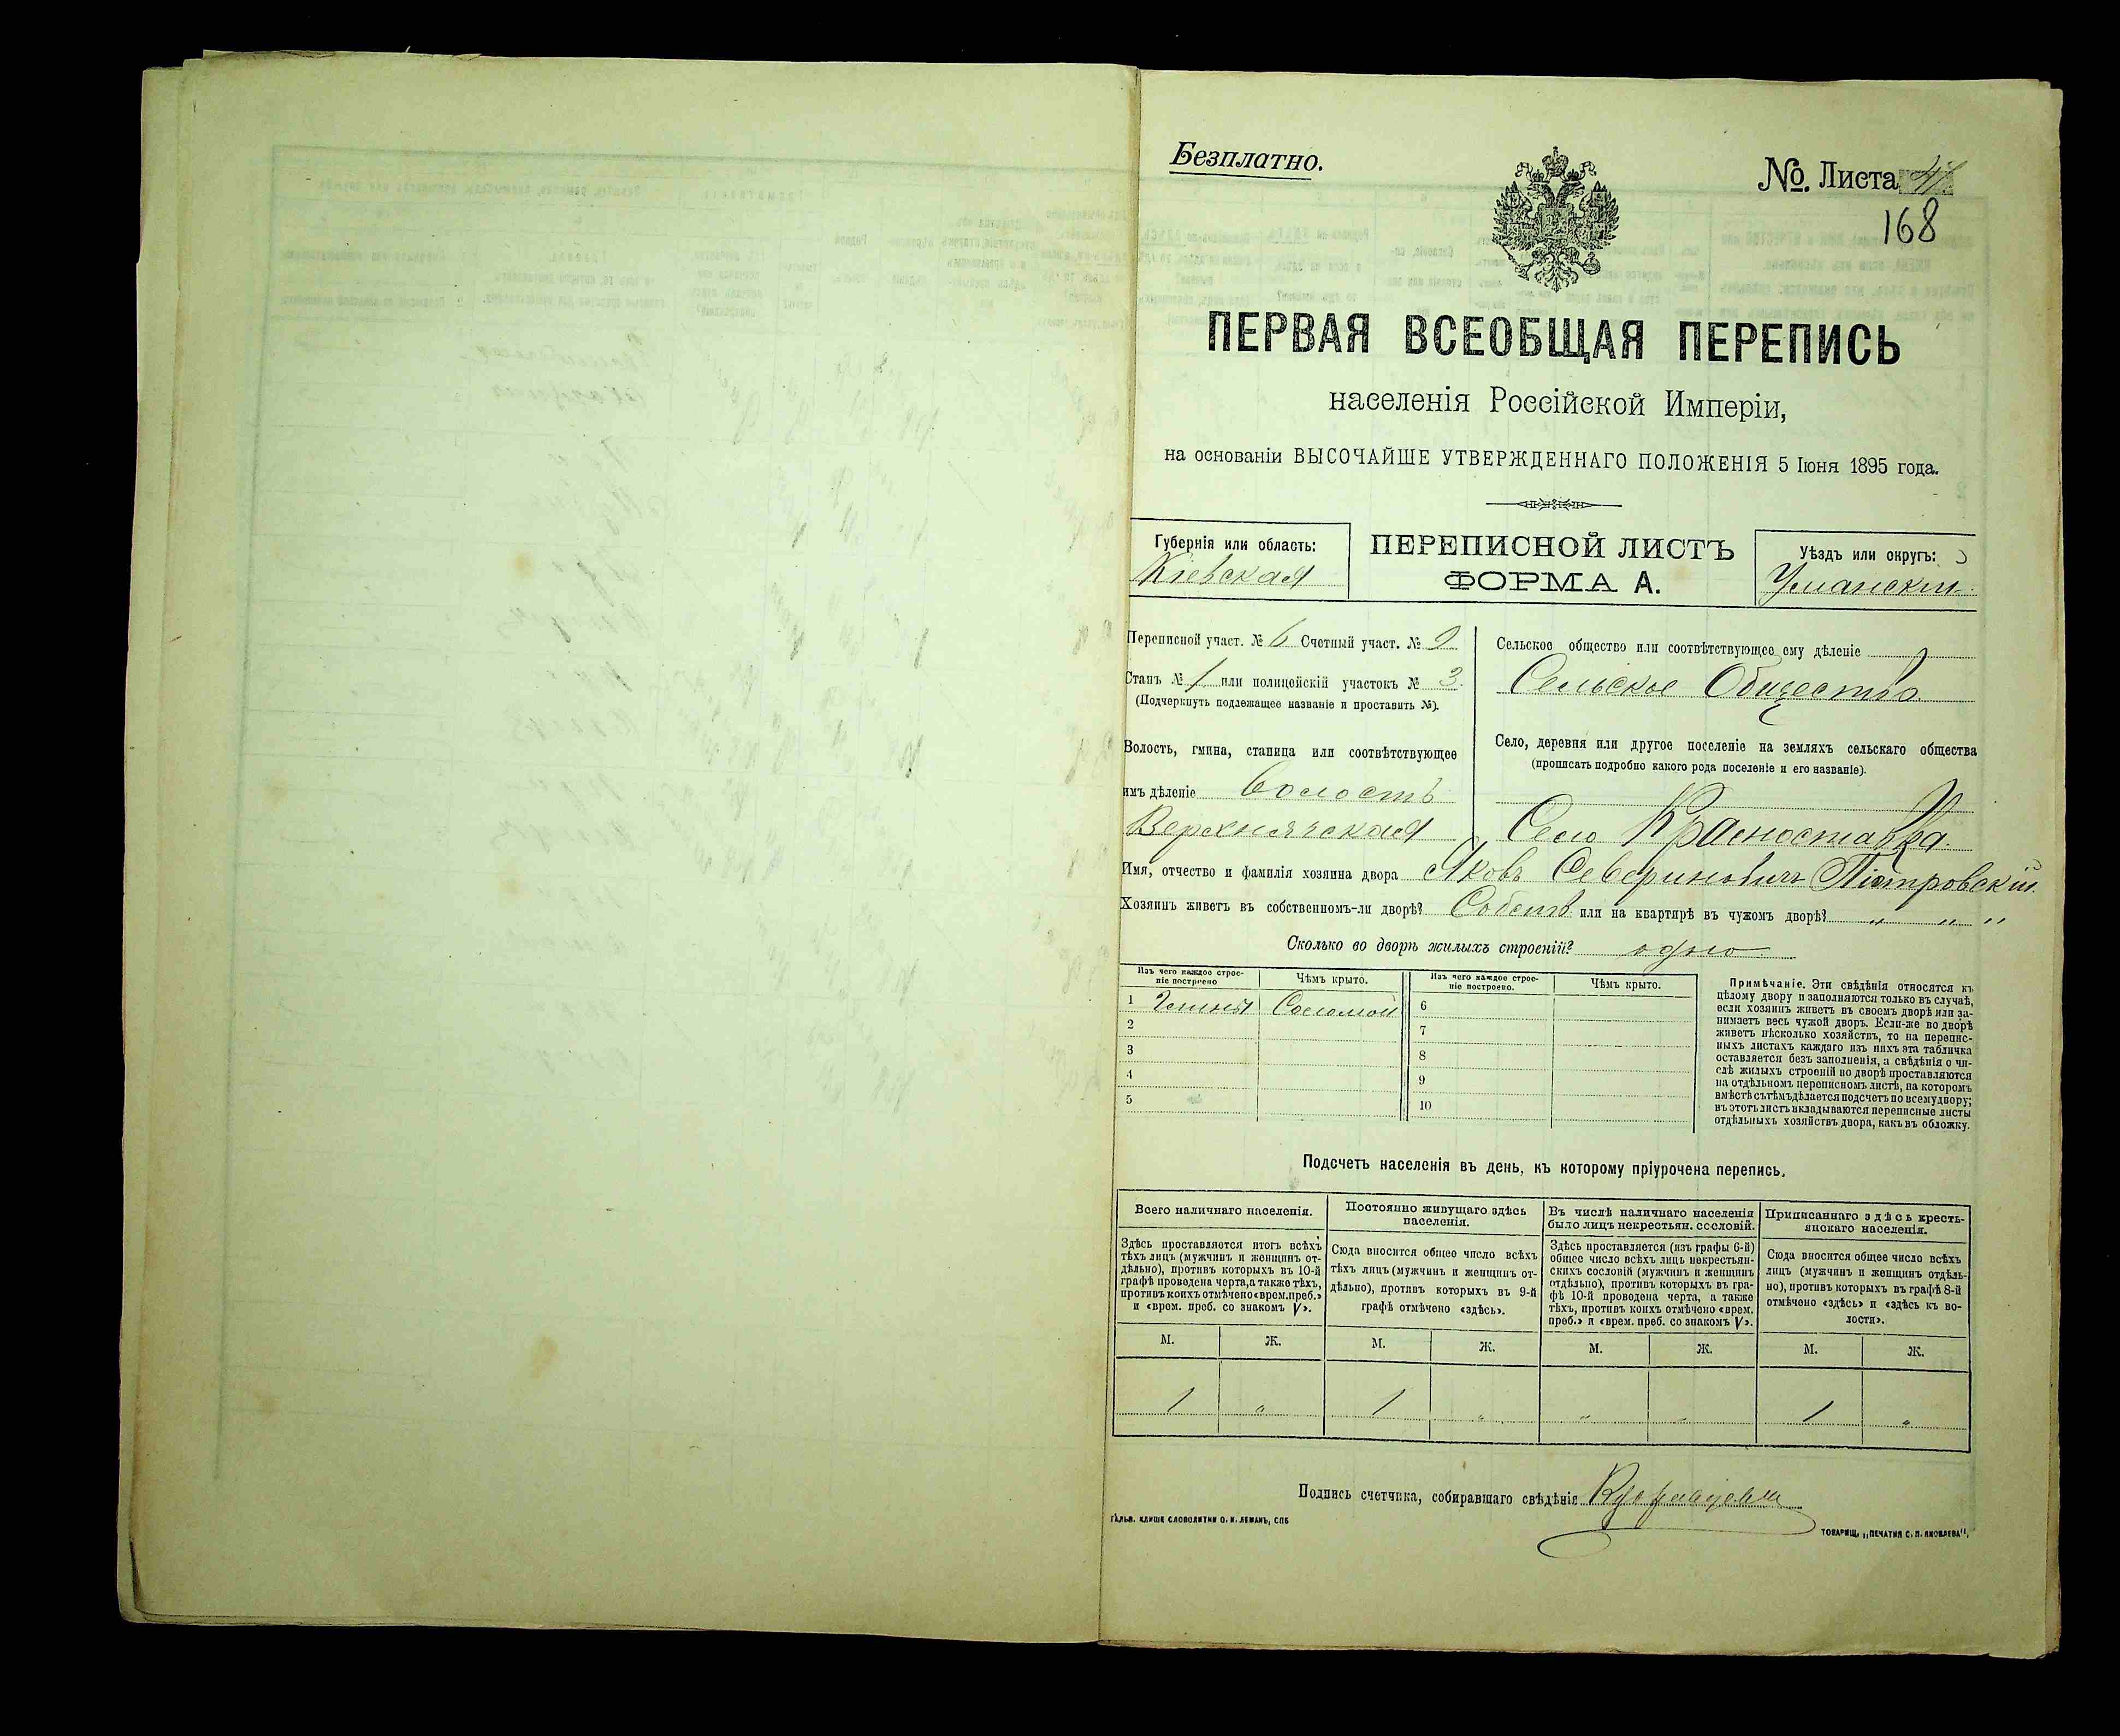 Безплатно.
№. Листа
168
ПЕРВАЯ ВСЕОБЩАЯ ПЕРЕПИСЬ
населенія Россійской Имперіи,
на основаніи ВЫСОЧАЙШЕ УТВЕРЖДЕННАГО ПОЛОЖЕНІЯ 5 Іюня 1895 года.
Губернія или область:
Кіевская
ПЕРЕПИСНОЙ ЛИСТЪ
ФОРМА А.
Уѣздъ или округъ:
Уманскій
Переписной участ. № 6 Счетный участ. № 2
Станъ № 1 или полицейскій участокъ № 3.
(Подчеркнуть подлежащее названіе и проставить №).
Волость, гмина, станица или соотвѣтствующее
имъ дѣленіе Волость
Верхнячская
Сельское общество или соотвѣтствующее ему дѣленіе
Сельское Общество.
Село, деревня или другое поселеніе на земляхъ сельскаго общества
(прописать подробно какого рода поселеніе и его названіе).
Село Красноставка.
Имя, отчество и фамилія хозяина двора Яковъ Севериновичъ Піотровскій.
Хозяинъ живетъ въ собственномъ-ли дворѣ? Собств. или на квартирѣ въ чужомъ дворѣ? " " "
Сколько во дворѣ жилыхъ строеній? одно
Изъ чего каждое строе-
ніе построено
Чѣмъ крыто.
Изъ чего каждое строе-
ніе построено.
Чѣмъ крыто.
1 Глины Соломой 6
2 7
3 8
4 9
5 10
Примѣчаніе. Эти свѣдѣнія относятся къ
цѣлому двору и заполняются только въ случаѣ,
если хозяинъ живетъ въ своемъ дворѣ или за-
нимаетъ весь чужой дворъ. Если-же во дворѣ
живетъ нѣсколько хозяйствъ, то на перепис-
ныхъ листахъ каждаго изъ нихъ эта табличка
оставляется безъ заполненія, а свѣдѣнія о чи-
слѣ жилыхъ строеній во дворѣ проставляются
на отдѣльномъ переписномъ листѣ, на которомъ
вмѣстѣ съ тѣмъ дѣлается подсчетъ по всему двору;
въ этотъ листъ вкладываются переписные листы
отдѣльныхъ хозяйствъ двора, какъ въ обложку.
Подсчетъ населенія въ день, къ которому пріурочена перепись.
Всего наличнаго населенія.
Здѣсь проставляется итогъ всѣхъ
тѣхъ лицъ (мужчинъ и женщинъ от-
дѣльно), противъ которыхъ въ 10-й
графѣ проведена черта, а также тѣхъ,
противъ коихъ отмѣчено «врем. преб.»
и «врем. преб. со знакомъ V».
Постоянно живущаго здѣсь
населенія.
Сюда вносится общее число всѣхъ
тѣхъ лицъ (мужчинъ и женщинъ от-
дѣльно), противъ которыхъ въ 9-й
графѣ отмѣчено «здѣсь».
Въ числѣ наличнаго населенія
было лицъ некрестьян. сословій.
Здѣсь проставляется (изъ графы 6-й)
общее число всѣхъ лицъ некрестьян-
скихъ сословій (мужчинъ и женщинъ
отдѣльно), противъ которыхъ въ гра-
фѣ 10-й проведена черта, а также
тѣхъ, противъ коихъ отмѣчено «врем.
преб.» и «врем. преб. со знакомъ V».
Приписаннаго здѣсь кресть-
янскаго населенія.
Сюда вносится общее число всѣхъ
лицъ (мужчинъ и женщинъ отдѣль-
но), противъ которыхъ въ графѣ 8-й
отмѣчено «здѣсь» и «здѣсь къ во-
лости».
М. Ж. М. Ж. М. Ж. М. Ж.
1 " 1 " " " 1 "
Подпись счетчика, собиравшаго свѣдѣнія
ГАЛЬВ. КЛИШЕ СЛОВОЛИТНИ О. И. ЛЕМАНЪ, СПБ
ТОВАРИЩ. „ПЕЧАТНЯ С. П. ЯКОВЛЕВА".